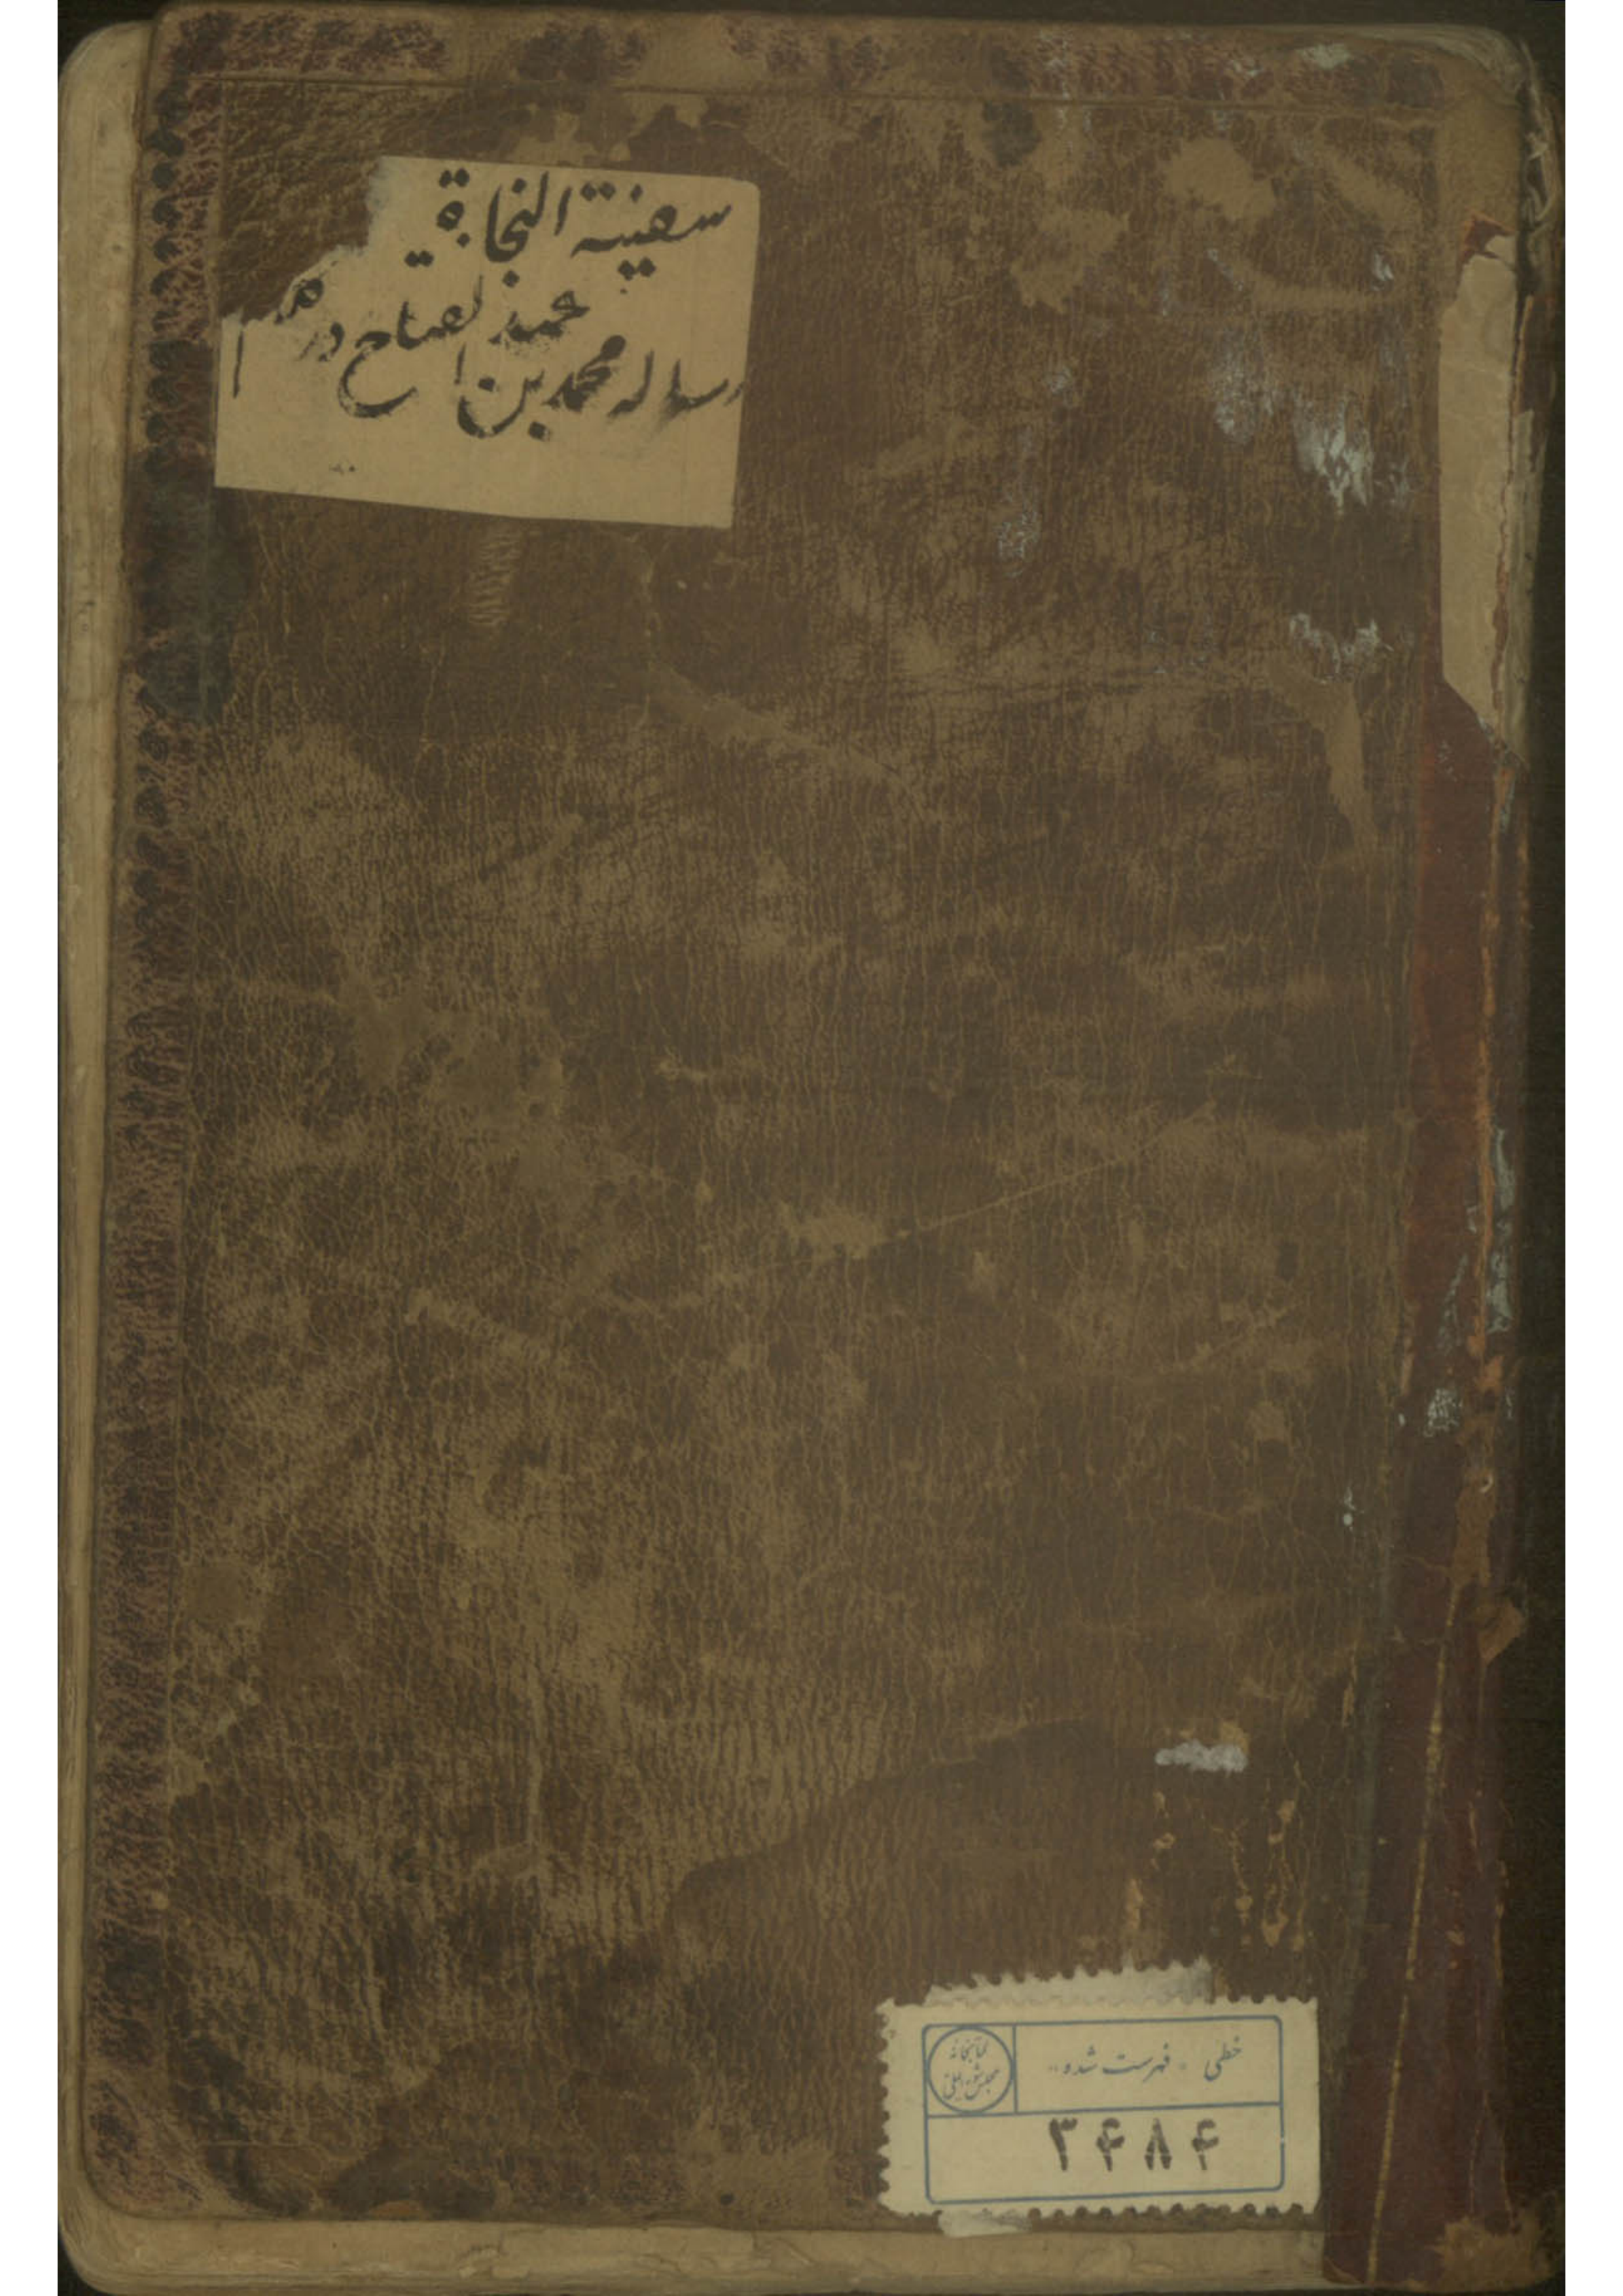 سفینة النجاة
رساله محمد بن عبد الفتاح در
خطی - فهرست شده
کتابخانه
مجلس شورای ملی
۳۴۸۴